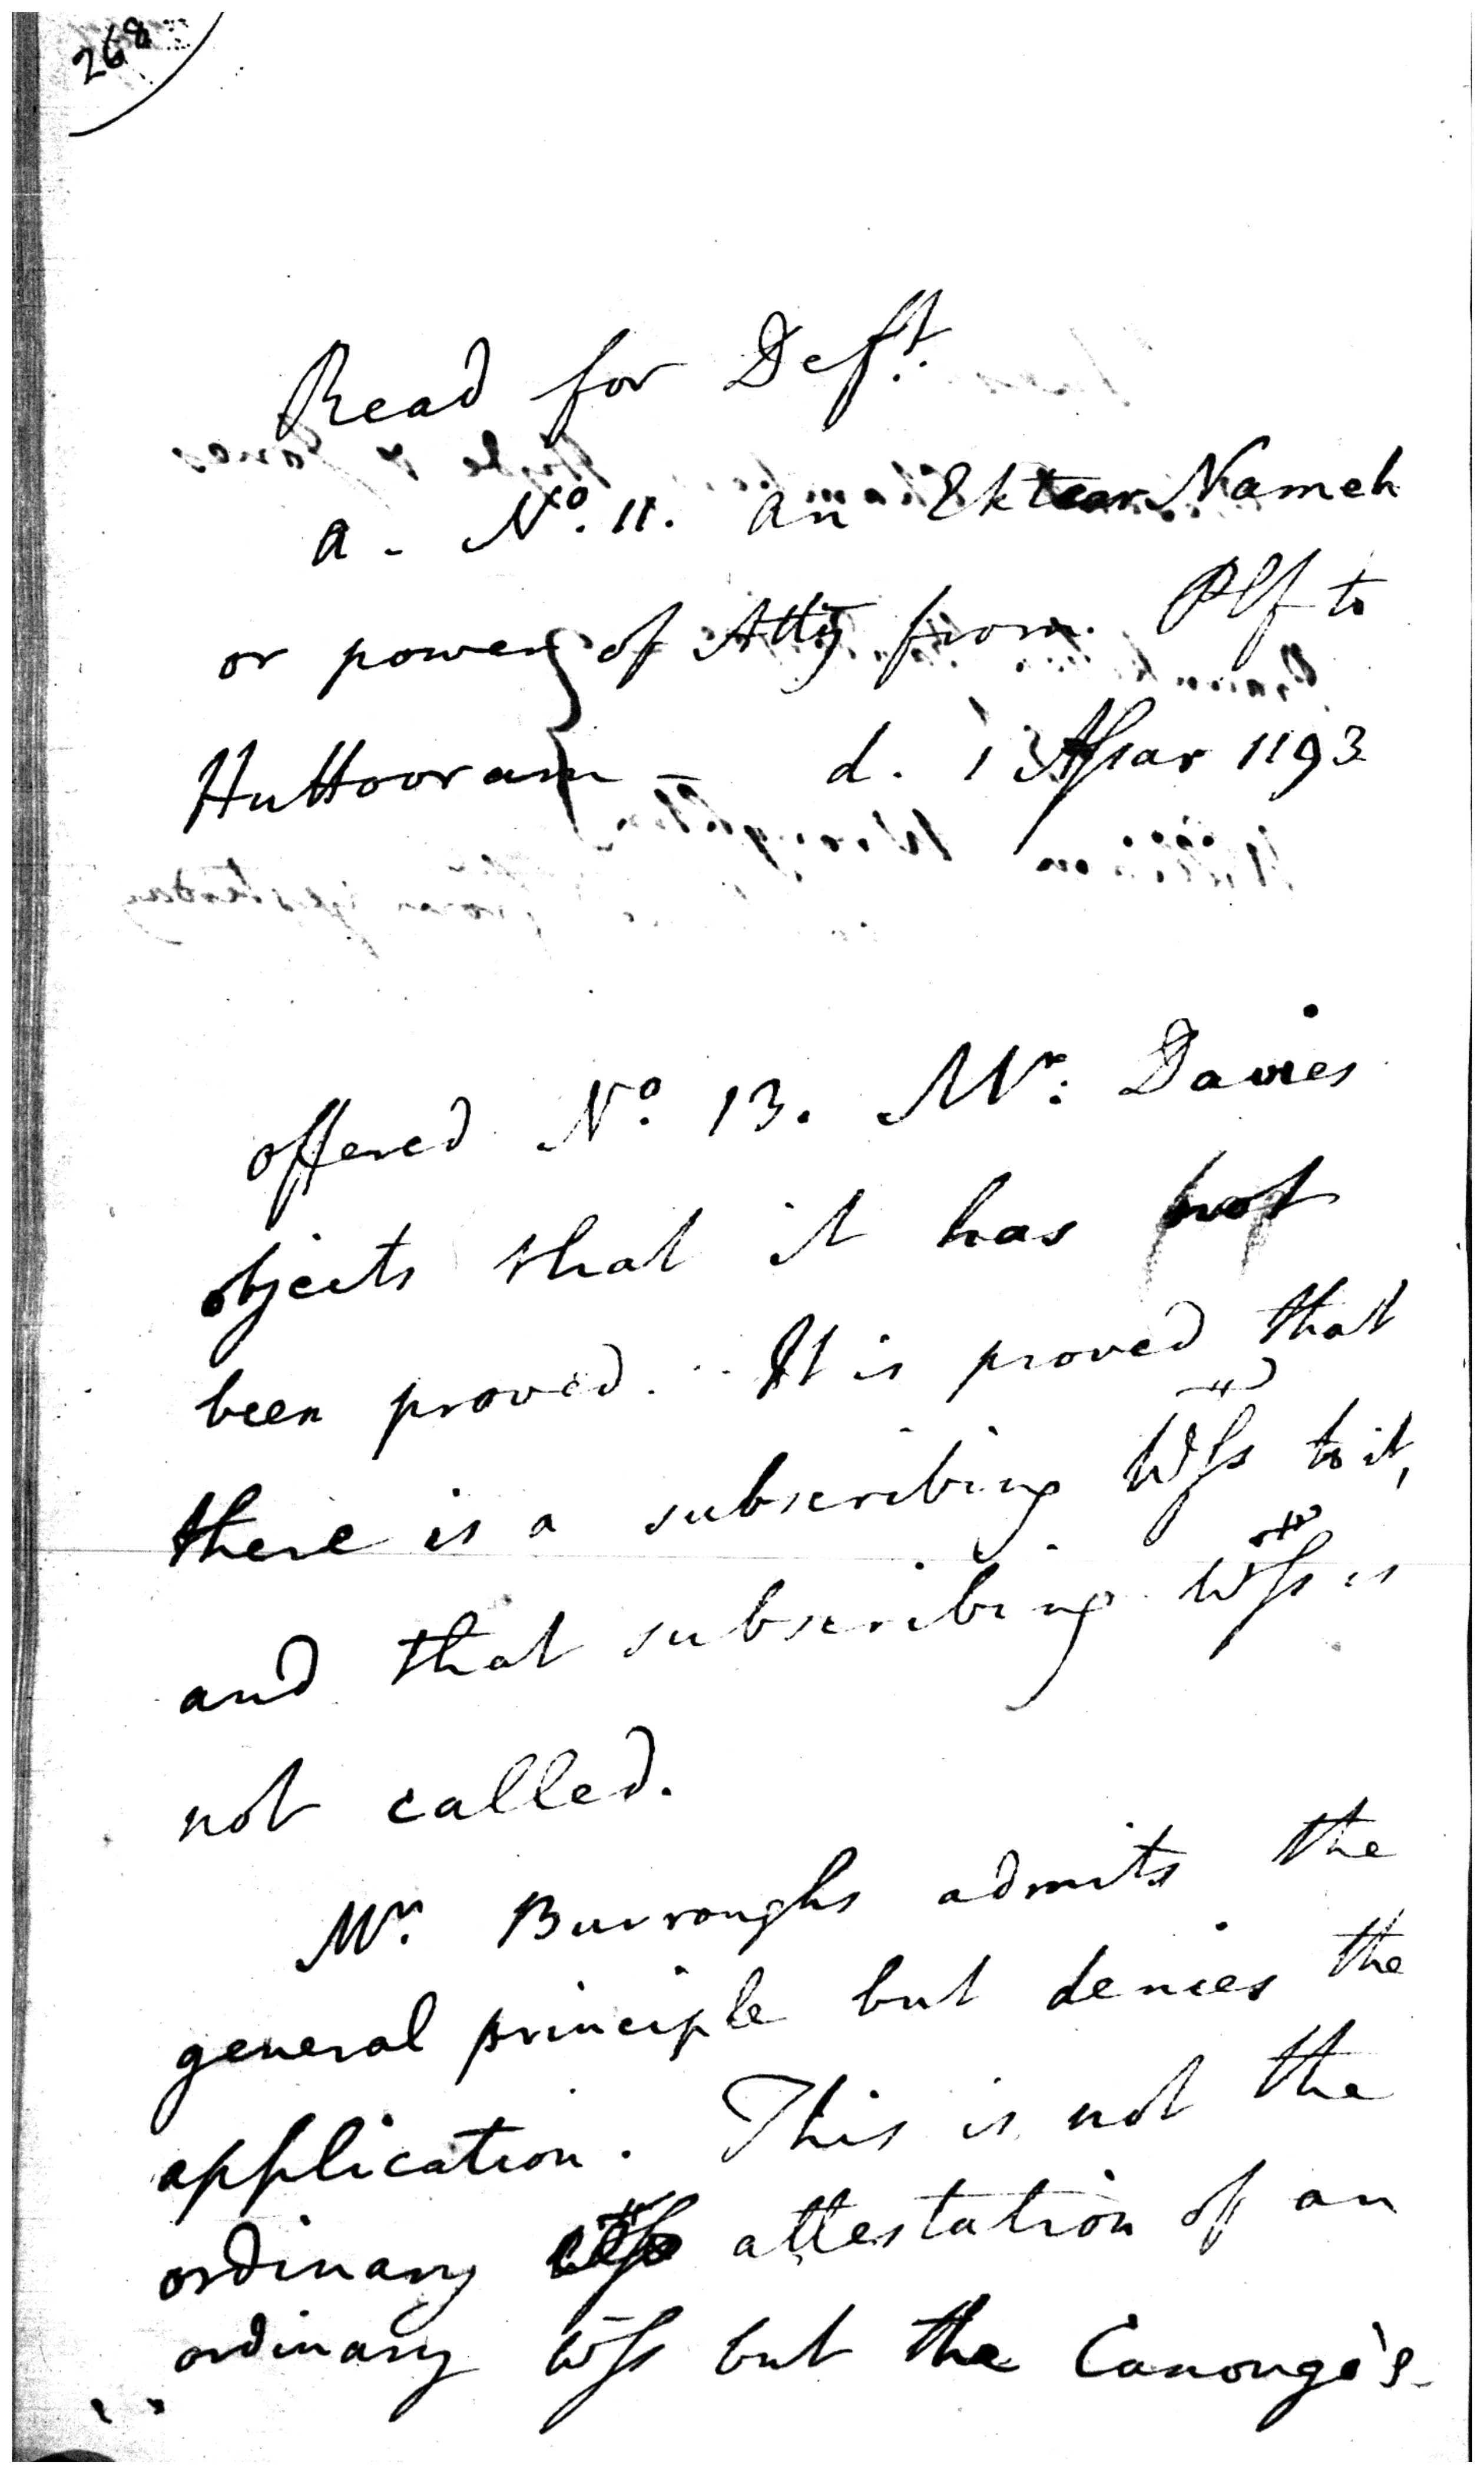 268
Read for Deft.
a. No. 11. an Ektear Nameh
or power of Atty from Plf to
Huttooram — d. 1 Assar 1193
offered No. 13. Mr. Davies
objects that it has not
been proved. It is proved that
there is a subscribing Wss to it,
and that subscribing Wss is
not called.
Mr. Burroughs admits the
general principle but denies the
application. This is not the
ordinary attestation of an
ordinary Wss but the Canongo's